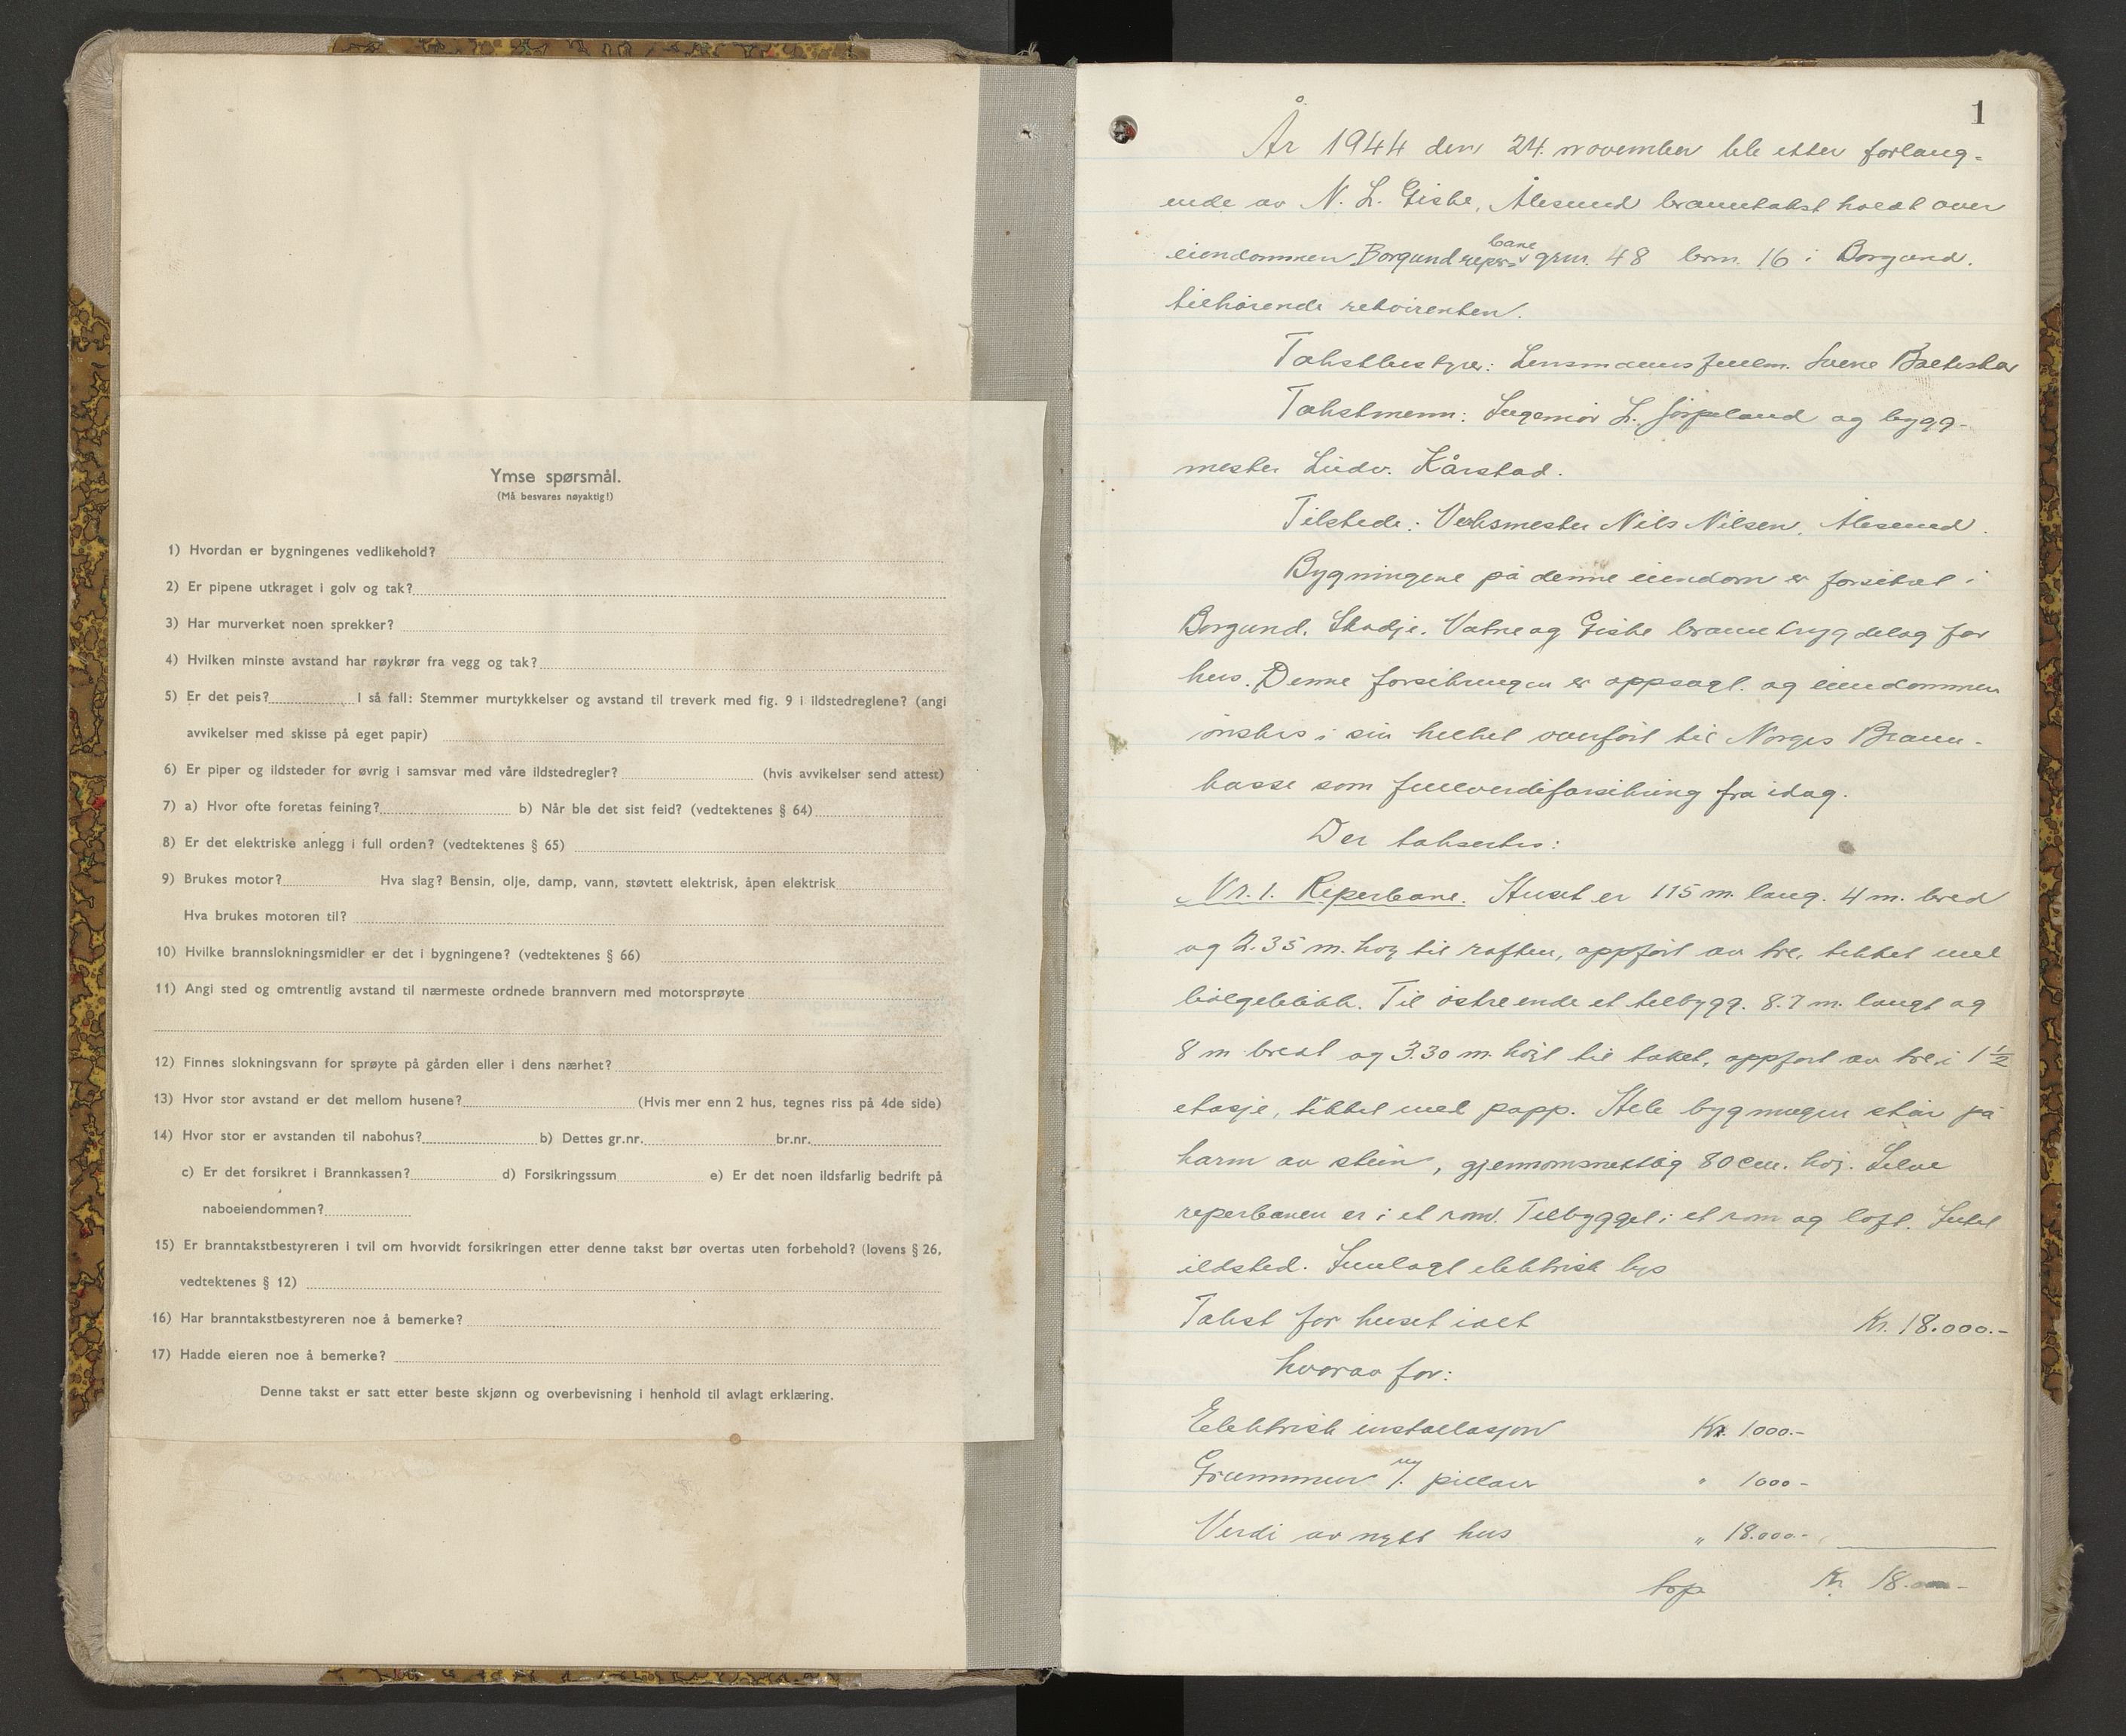 Ymse spørsmål.
(Må besvares nøyaktig!)
1) Hvordan er bygningenes vedlikehold?
2) Er pipene utkraget i golv og tak?
3) Har murverket noen sprekker?
4) Hvilken minste avstand har røykrør fra vegg og tak?
5) Er det peis? I så fall: Stemmer murtykkelser og avstand til treverk med fig. 9 i ildstedreglene? (angi
avvikelser med skisse på eget papir)
6) Er piper og ildsteder for øvrig i samsvar med våre ildstedregler? (hvis avvikelser send attest)
7) a) Hvor ofte foretas feining? b) Når ble det sist feid? (vedtektenes § 64)
8) Er det elektriske anlegg i full orden? (vedtektenes § 65)
9) Brukes motor? Hva slag? Bensin, olje, damp, vann, støvtett elektrisk, åpen elektrisk
Hva brukes motoren til?
10) Hvilke brannslokningsmidler er det i bygningene? (vedtektenes § 66)
11) Angi sted og omtrentlig avstand til nærmeste ordnede brannvern med motorsprøyte
12) Finnes slokningsvann for sprøyte på gården eller i dens nærhet?
13) Hvor stor avstand er det mellom husene? (Hvis mer enn 2 hus, tegnes riss på 4de side)
14) Hvor stor er avstanden til nabohus? b) Dettes gr.nr. br.nr.
c) Er det forsikret i Brannkassen? d) Forsikringssum e) Er det noen ildsfarlig bedrift på
naboeiendommen?
15) Er branntakstbestyreren i tvil om hvorvidt forsikringen etter denne takst bør overtas uten forbehold? (lovens § 26,
vedtektenes § 12)
16) Har branntakstbestyreren noe å bemerke?
17) Hadde eieren noe å bemerke?
Denne takst er satt etter beste skjønn og overbevisning i henhold til avlagt erklæring.
1
År 1944 den 24. november ble etter forlang-
ende av N. L. Giske, Ålesund branntakst holdt over
eiendommen Borgund reper-bane grnr. 48 brnr. 16 i Borgund.
tilhørende rekvirenten.
Takstbestyrer: Lensmannsfullm.
Takstmenn: Ingeniør L. Jørpeland og bygg-
mester Ludv. Kårstad.
Tilstede: Verksmester Nils Nilsen, Ålesund.
Bygningene på denne eiendom er forsikret i
Borgund, Skodje, Vatne og Giske branntrygdelag for
hus. Denne forsikringen er oppsagt. og eiendommen
ønskes i sin helhet overført til Norges Brann-
kasse som fullverdiforsikring fra idag.
Der takseres:
Nr. 1. Reperbane. Huset er 115 m. lang. 4 m. bred
og 2.35 m. høg til raften, oppført av tre, tekket med
bølgeblikk. Til østre ende et tilbygg. 8.7 m. langt og
8 m. bredt og 3.30 m. høgt til taket, oppført av tre i 1 1/2
etasje, tekket med papp. Hele bygningen står på
karm av stein, gjennomsnittlig 80 cm. høg. Selve
reperbanen er i et rom. Tilbygget i et rom og loft. Intet
ildsted. Innlagt elektrisk lys
Takst for huset ialt Kr. 18.000.-
hvorav for:
Elektrisk installasjon Kr. 1000.-
Grunnmur pillarer " 1000-
Verdi av nytt hus " 18.000.-
Kr. 18.000-